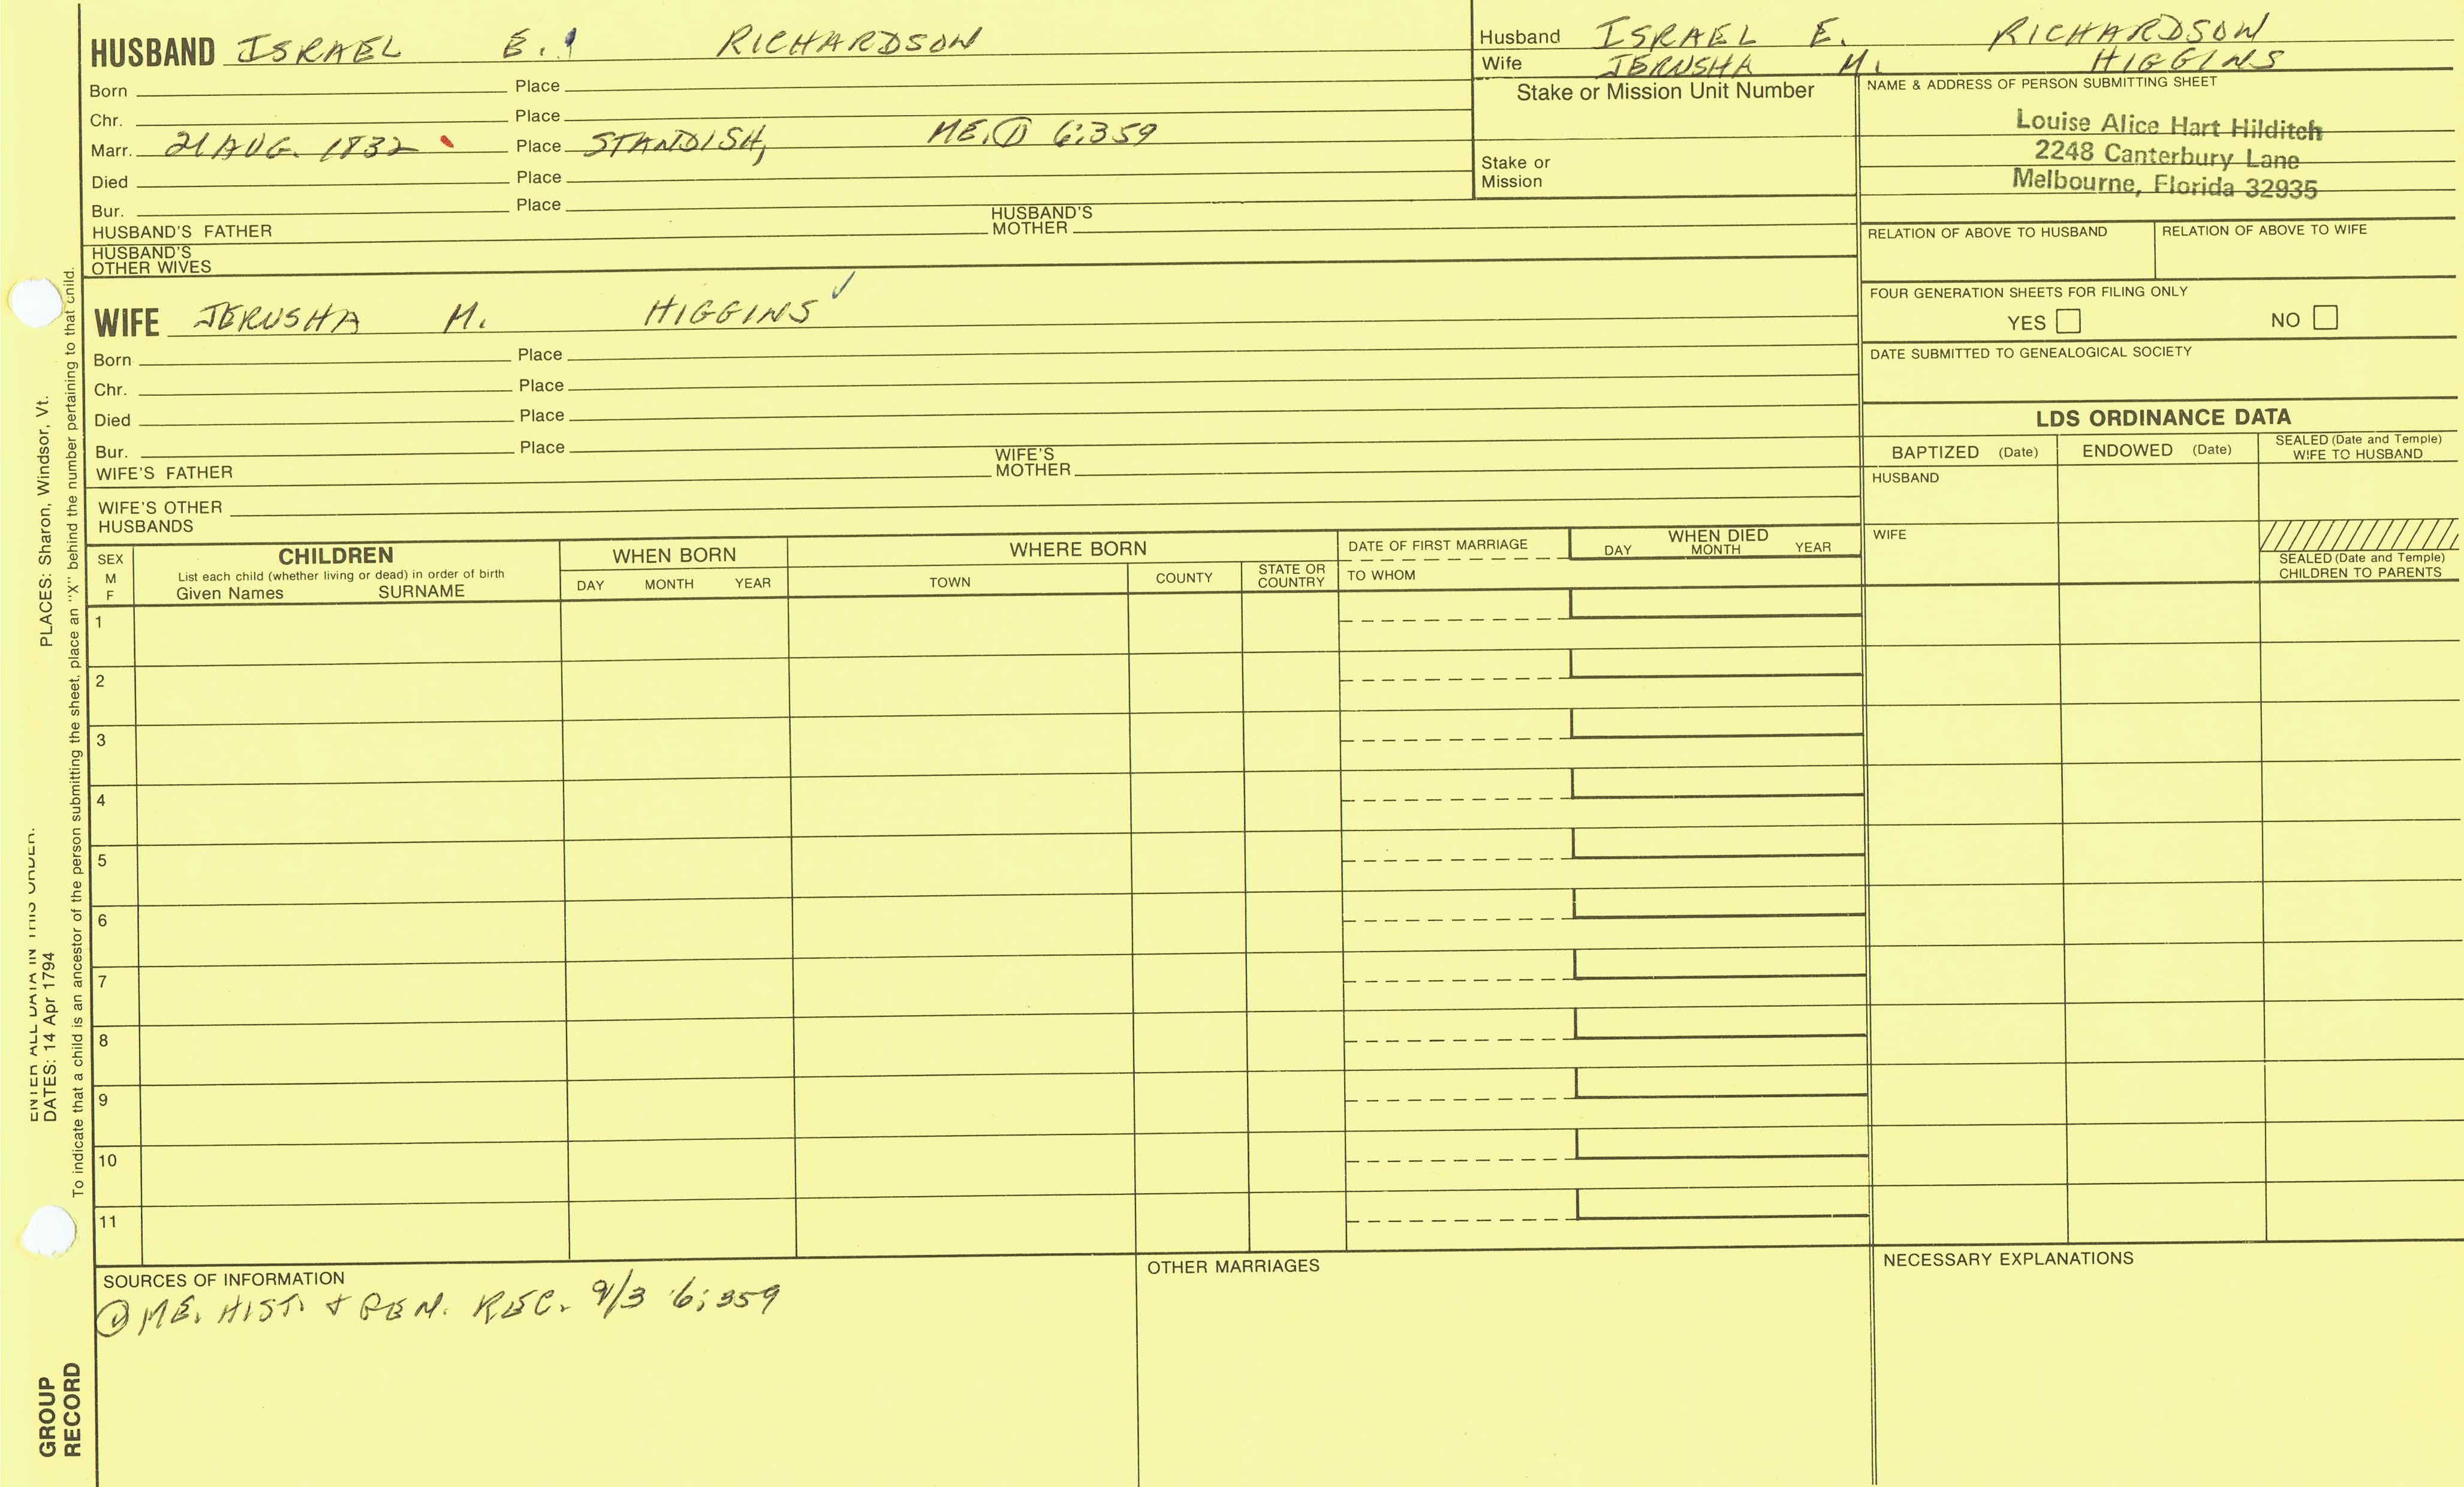 HUSBAND ISRAEL E. RICHARDSON
Born Place
Chr. Place
Marr. 21 AUG. 1832 Place STANDISH, ME. ① 6:359
Died Place
Bur. Place
HUSBAND'S FATHER HUSBAND'S MOTHER
HUSBAND'S OTHER WIVES
Husband ISRAEL E. RICHARDSON
Wife JERUSHA M. HIGGINS
Stake or Mission Unit Number
Stake or Mission
NAME & ADDRESS OF PERSON SUBMITTING SHEET
Louise Alice Hart Hilditch
2248 Canterbury Lane
Melbourne, Florida 32935
RELATION OF ABOVE TO HUSBAND RELATION OF ABOVE TO WIFE
FOUR GENERATION SHEETS FOR FILING ONLY
YES NO
DATE SUBMITTED TO GENEALOGICAL SOCIETY
WIFE JERUSHA M. HIGGINS ✓
Born Place
Chr. Place
Died Place
Bur. Place
WIFE'S FATHER WIFE'S MOTHER
WIFE'S OTHER HUSBANDS
LDS ORDINANCE DATA
BAPTIZED (Date) ENDOWED (Date) SEALED (Date and Temple) WIFE TO HUSBAND
HUSBAND
WIFE
SEALED (Date and Temple) CHILDREN TO PARENTS
SEX M F
CHILDREN
List each child (whether living or dead) in order of birth
Given Names SURNAME
WHEN BORN
DAY MONTH YEAR
WHERE BORN
TOWN COUNTY STATE OR COUNTRY
DATE OF FIRST MARRIAGE
TO WHOM
WHEN DIED
DAY MONTH YEAR
1
2
3
4
5
6
7
8
9
10
11
SOURCES OF INFORMATION
① ME. HIST. & REM. REC. 9/3 6:359
OTHER MARRIAGES
NECESSARY EXPLANATIONS
ENTER ALL DATA IN THIS ORDER:
DATES: 14 Apr 1794 PLACES: Sharon, Windsor, Vt.
To indicate that a child is an ancestor of the person submitting the sheet, place an "X" behind the number pertaining to that child.
GROUP
RECORD